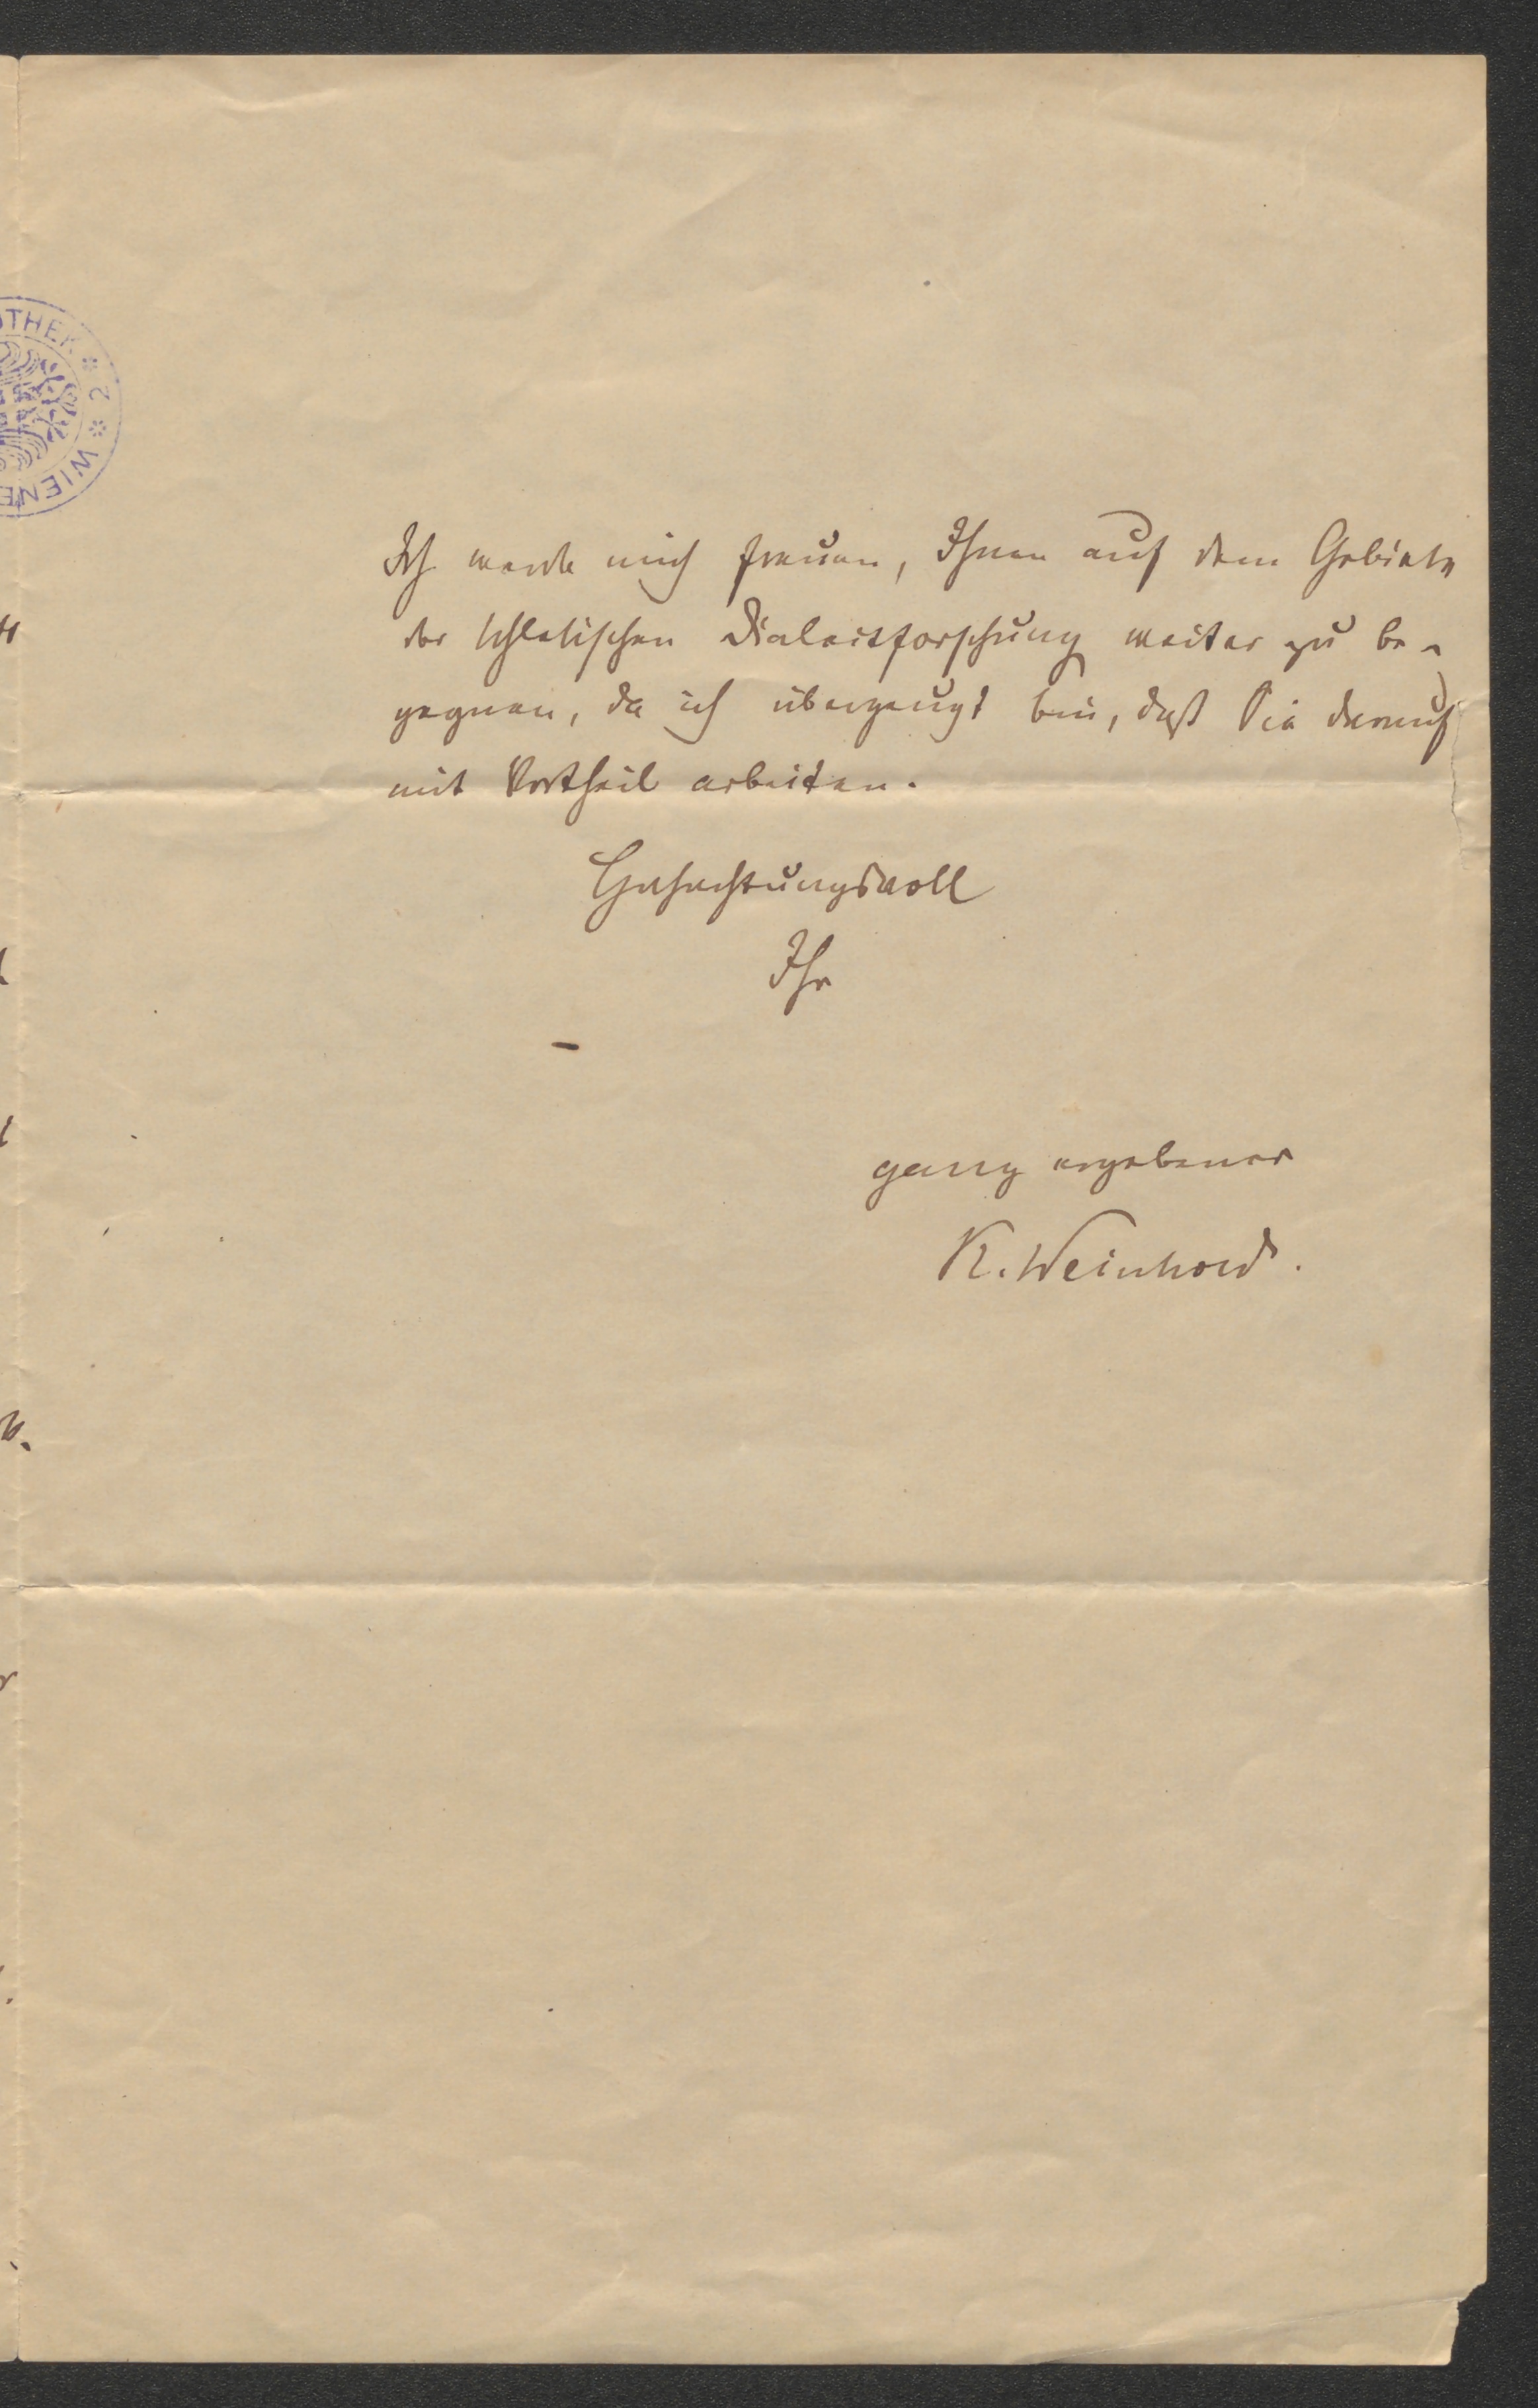 OTHEK * 2 * WIENE
Ich werde mich freuen, Ihnen auf dem Gebiete
der schlesischen Dialectforschung weiter zu be-
gegnen, da ich überzeugt bin, daß Sie darauf
mit Vortheil arbeiten.
Hochachtungsvoll
Ihr
ganz ergebener
K. Weinhold.